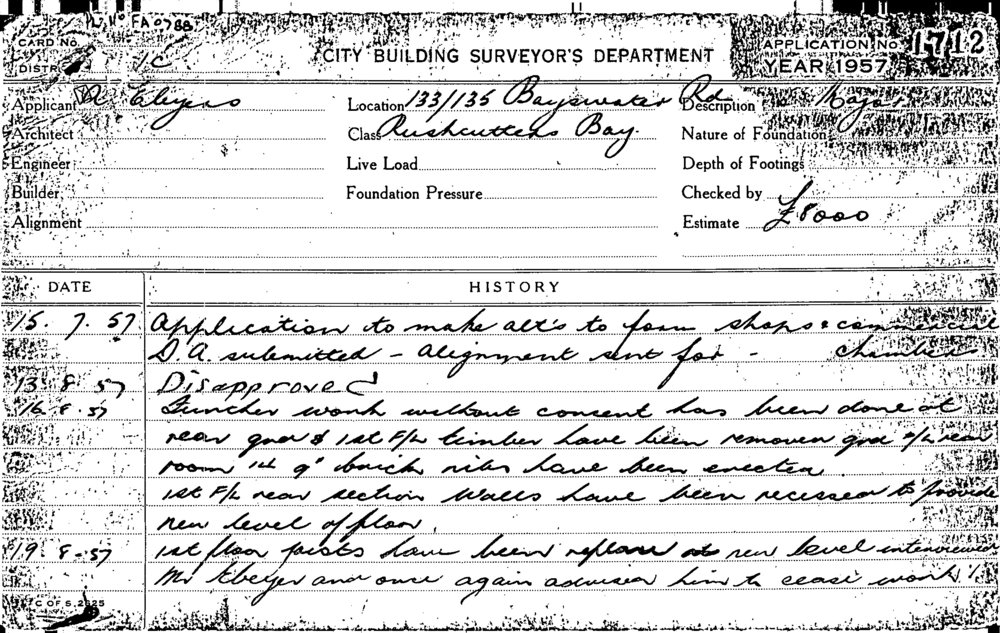 FA 0788
CARD No
DISTR 1C
CITY BUILDING SURVEYOR'S DEPARTMENT
APPLICATION No 1712
YEAR 1957
Applicant
Location 133/135 Bayswater Rd
Description
Architect
Class Rushcutters Bay
Nature of Foundation
Engineer
Live Load
Depth of Footings
Builder
Foundation Pressure
Checked by
Alignment
Estimate £8000
DATE HISTORY
15. 7. 57 Application to make alt's to form shops & commercial
D.A. submitted - alignment sent for - chambers
13. 8. 57 Disapproved
16. 8. 57 Further work without consent has been done at
rear grd & 1st F/L timber have been removed grd F/L rear
room 14 9" brick ribs have been erected.
1st F/L rear section Walls have been recessed to provide
new level of floor.
19. 8. 57 1st floor joists have been replaced at new level interviewed
Mr Ebeyer and once again advised him to cease work
C OF S. 2825